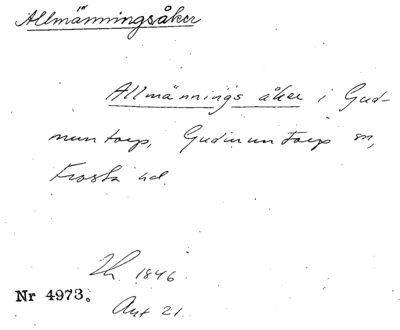 Allmänningsåker
Allmännings åker i Gud-
muntorp, Gudmuntorp sn,
Frosta hd.
Lh. 1846.
Nr 4973.
Avt 21.